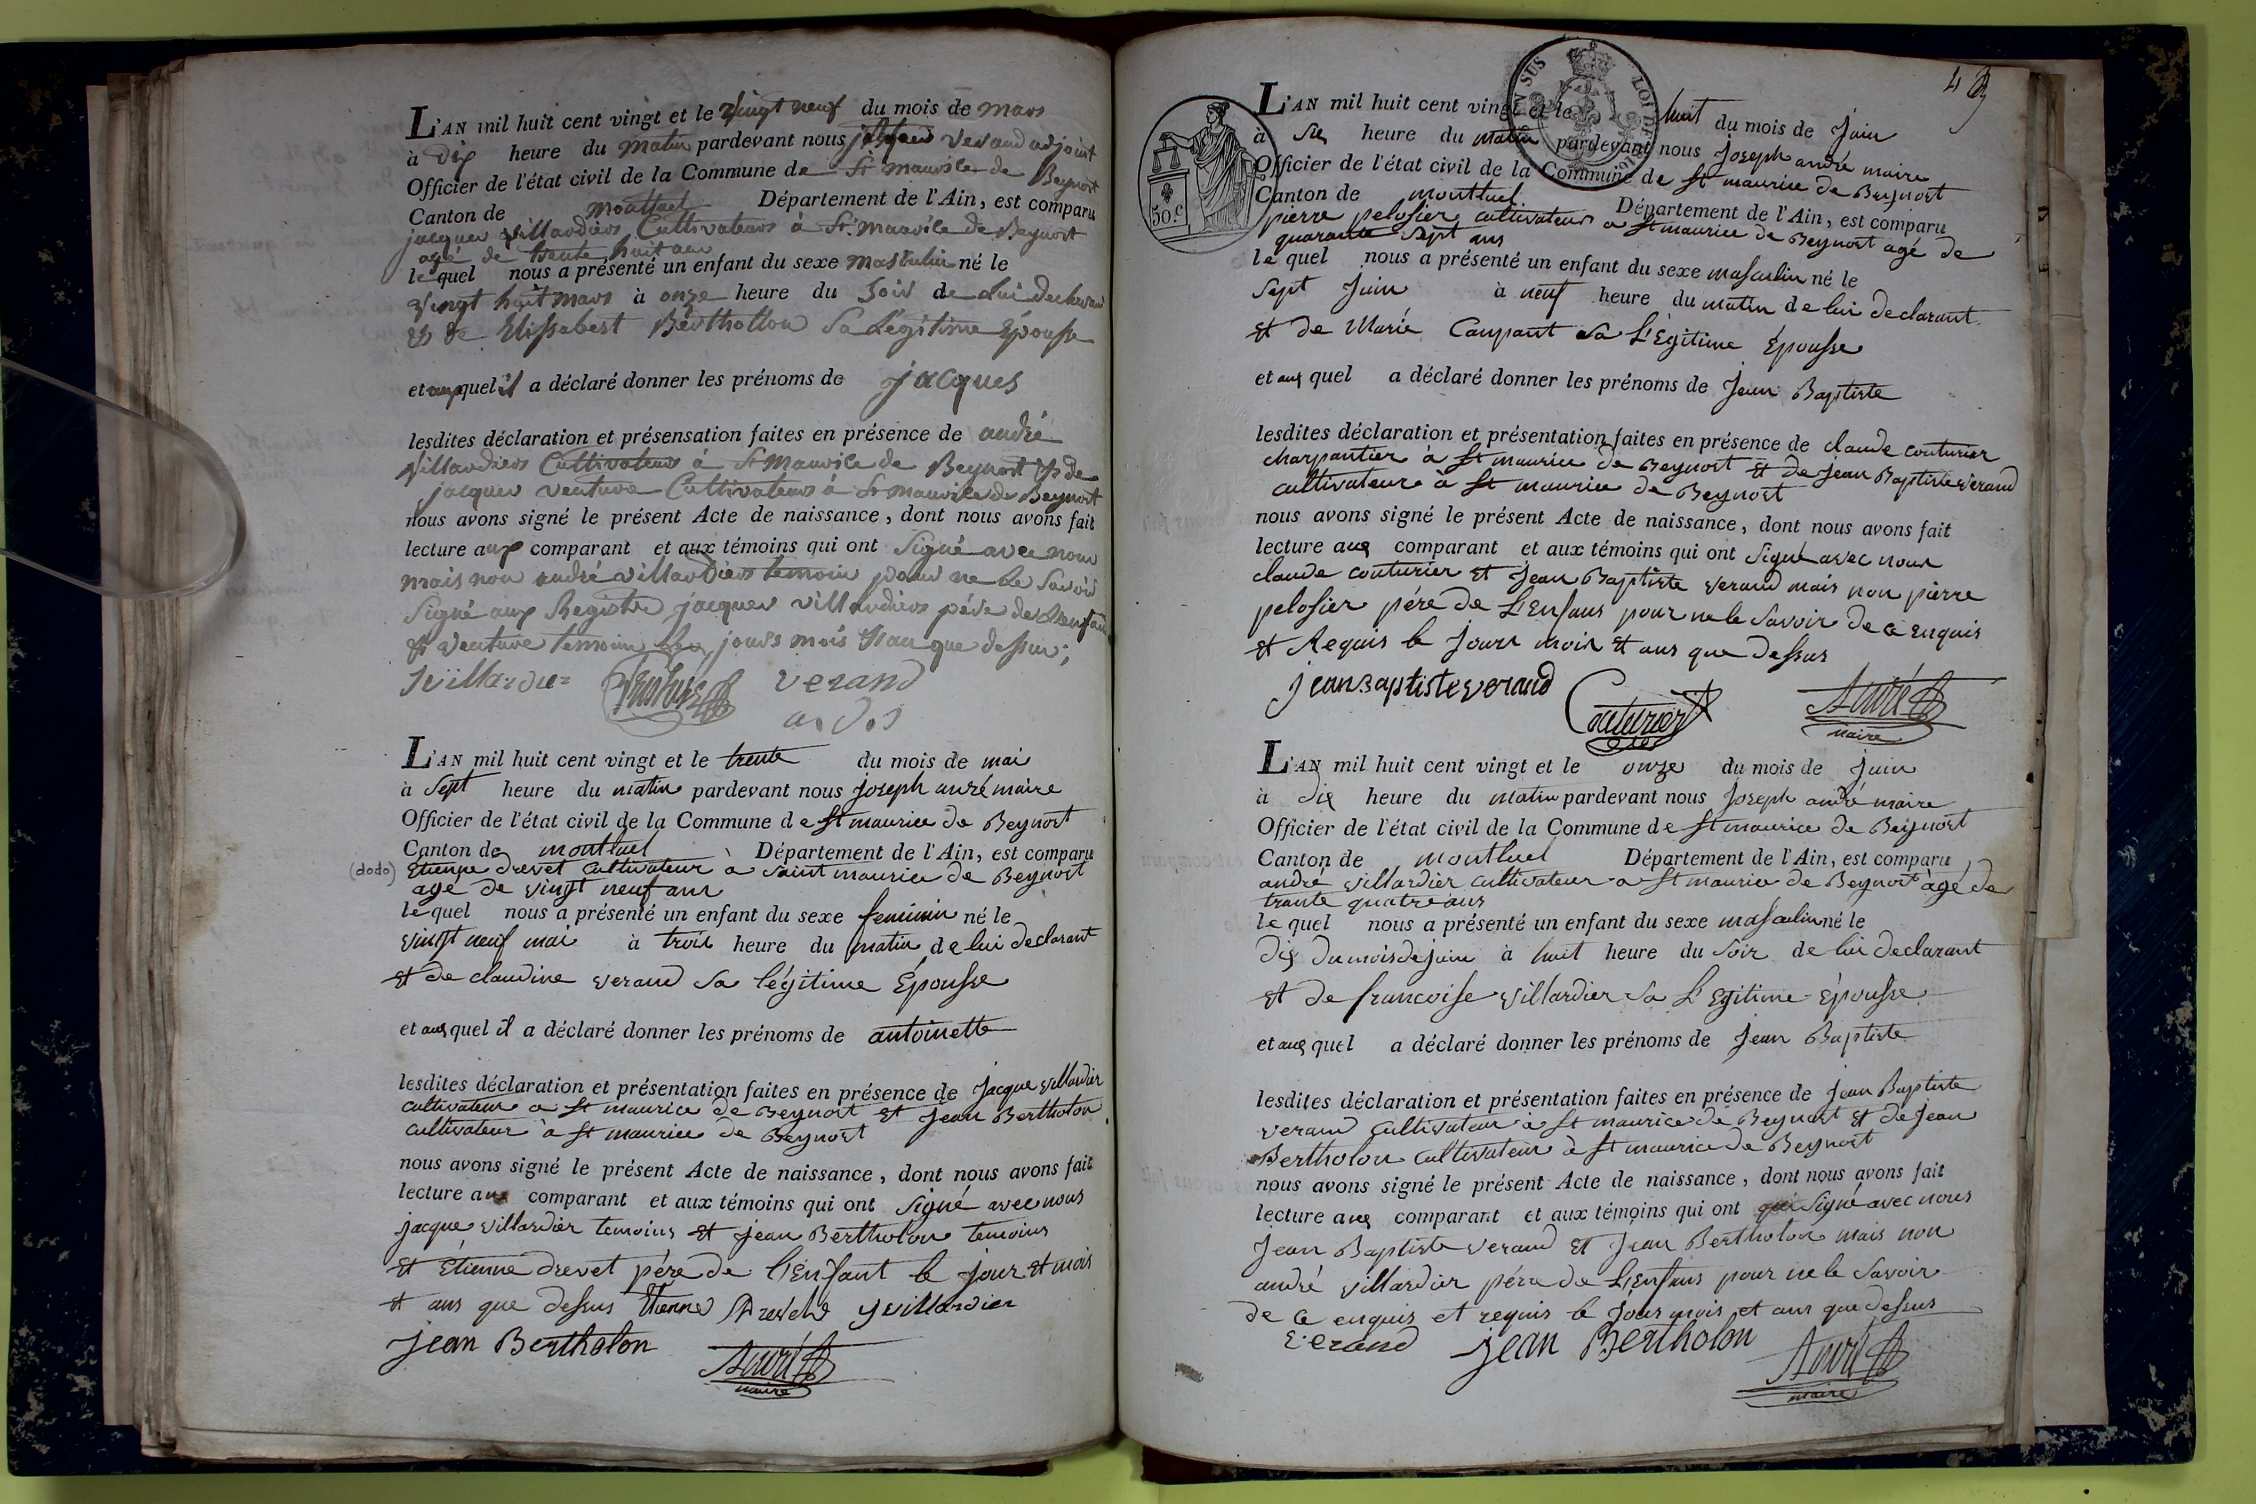 L'AN mil huit cent vingt et le vingt neuf du mois de mars
à dix heure du matin pardevant nous verand adjoint
Officier de l'état civil de la Commune de St maurice de Beynost
Canton de montluel Département de l'Ain, est comparu
jacques villardier Cultivateur à St. Maurice de Beynost
agé de trente huit ans
lequel nous a présenté un enfant du sexe masculin né le
vingt huit mars à onze heure du Soir de Lui declarant
et de Elissabest Berthollon Sa Légitime Epousse
et aux quel il a déclaré donner les prénoms de jacques
lesdites déclaration et présensation faites en présence de andré
villardier Cultivateur à St Maurice de Beynost et de
jacques venture Cultivateur à St maurice de Beynost
nous avons signé le présent Acte de naissance, dont nous avons fait
lecture aux comparant et aux témoins qui ont Signé avec nous
mais non andré villardier temoin pour ne le Savoir
Signé aux Registre jacques villardier pére de Lenfant
et venture temoin les jours mois Et an que dessus;
jvillardier verand
L'AN mil huit cent vingt et le trente du mois de mai
à Sept heure du matin pardevant nous joseph andré maire
Officier de l'état civil de la Commune de St maurice de Beynost
Canton de montluel Département de l'Ain, est comparu
(dodo) Etienne drevet cultivateur à Saint maurice de Beynost
agé de vingt neuf ans
lequel nous a présenté un enfant du sexe feminin né le
vingt neuf mai à trois heure du matin de lui declarant
et de claudine verand sa légitime Épousse
et aux quel il a déclaré donner les prénoms de antoinette
lesdites déclaration et présentation faites en présence de jacque villardier
cultivateur a St maurice de Beynost et jean Bertholon
cultivateur à St maurice de Beynost
nous avons signé le présent Acte de naissance, dont nous avons fait
lecture aux comparant et aux témoins qui ont signé avec nous
jacque villardier temoins et jean Bertholon temoins
et Étienne drevet pére de l'Enfant le jour et mois
et ans que dessus Etienne jvillardier
jean Bertholon André
maire
43
SUS LOI DE
50.c
L'AN mil huit cent vingt et le huit du mois de juin
à six heure du matin pardevant nous joseph andré maire
Officier de l'état civil de la Commune de St maurice de Beynost
Canton de montluel Département de l'Ain, est comparu
pierre pelosier cultivateur a St maurice de Beynost agé de
quarante sept ans
lequel nous a présenté un enfant du sexe masculin né le
sept juin à neuf heure du matin de lui declarant
et de Marie Campant sa L'Égitime Épousse
et aux quel a déclaré donner les prénoms de jean Baptiste
lesdites déclaration et présentation faites en présence de claude couturier
charpantier à St maurice de Beynost et de jean Baptiste verand
cultivateur à St maurice de Beynost
nous avons signé le présent Acte de naissance, dont nous avons fait
lecture aux comparant et aux témoins qui ont signé avec nous
claude couturier et jean Baptiste verand mais non pierre
pelosier pére de L'Enfans pour ne le savoir de ce enquis
et Requis le jours mois et ans que dessus
jean Baptiste verand Couturier André
maire
L'AN mil huit cent vingt et le onze du mois de juin
à dix heure du matin pardevant nous joseph andré maire
Officier de l'état civil de la Commune de St maurice de Beynost
Canton de montluel Département de l'Ain, est comparu
andré villardier cultivateur a St maurice de Beynost àgé de
trante quatre ans
lequel nous a présenté un enfant du sexe masculin né le
dix du mois de juin à huit heure du soir de lui declarant
et de francoise villardier sa L'Egitime Épousse
et aux quel a déclaré donner les prénoms de jean Baptiste
lesdites déclaration et présentation faites en présence de jean Baptiste
verand cultivateur à St maurice de Beynost et de jean
Bertholon cultivateur à St maurice de Beynost
nous avons signé le présent Acte de naissance, dont nous avons fait
lecture aux comparant et aux témoins qui ont signé avec nous
jean Baptiste verand et jean Bertholon mais non
andré villardier pére de L'Enfans pour ne le savoir
de ce enquis et requis le jours mois et ans que dessus
verand jean Bertholon André
maire